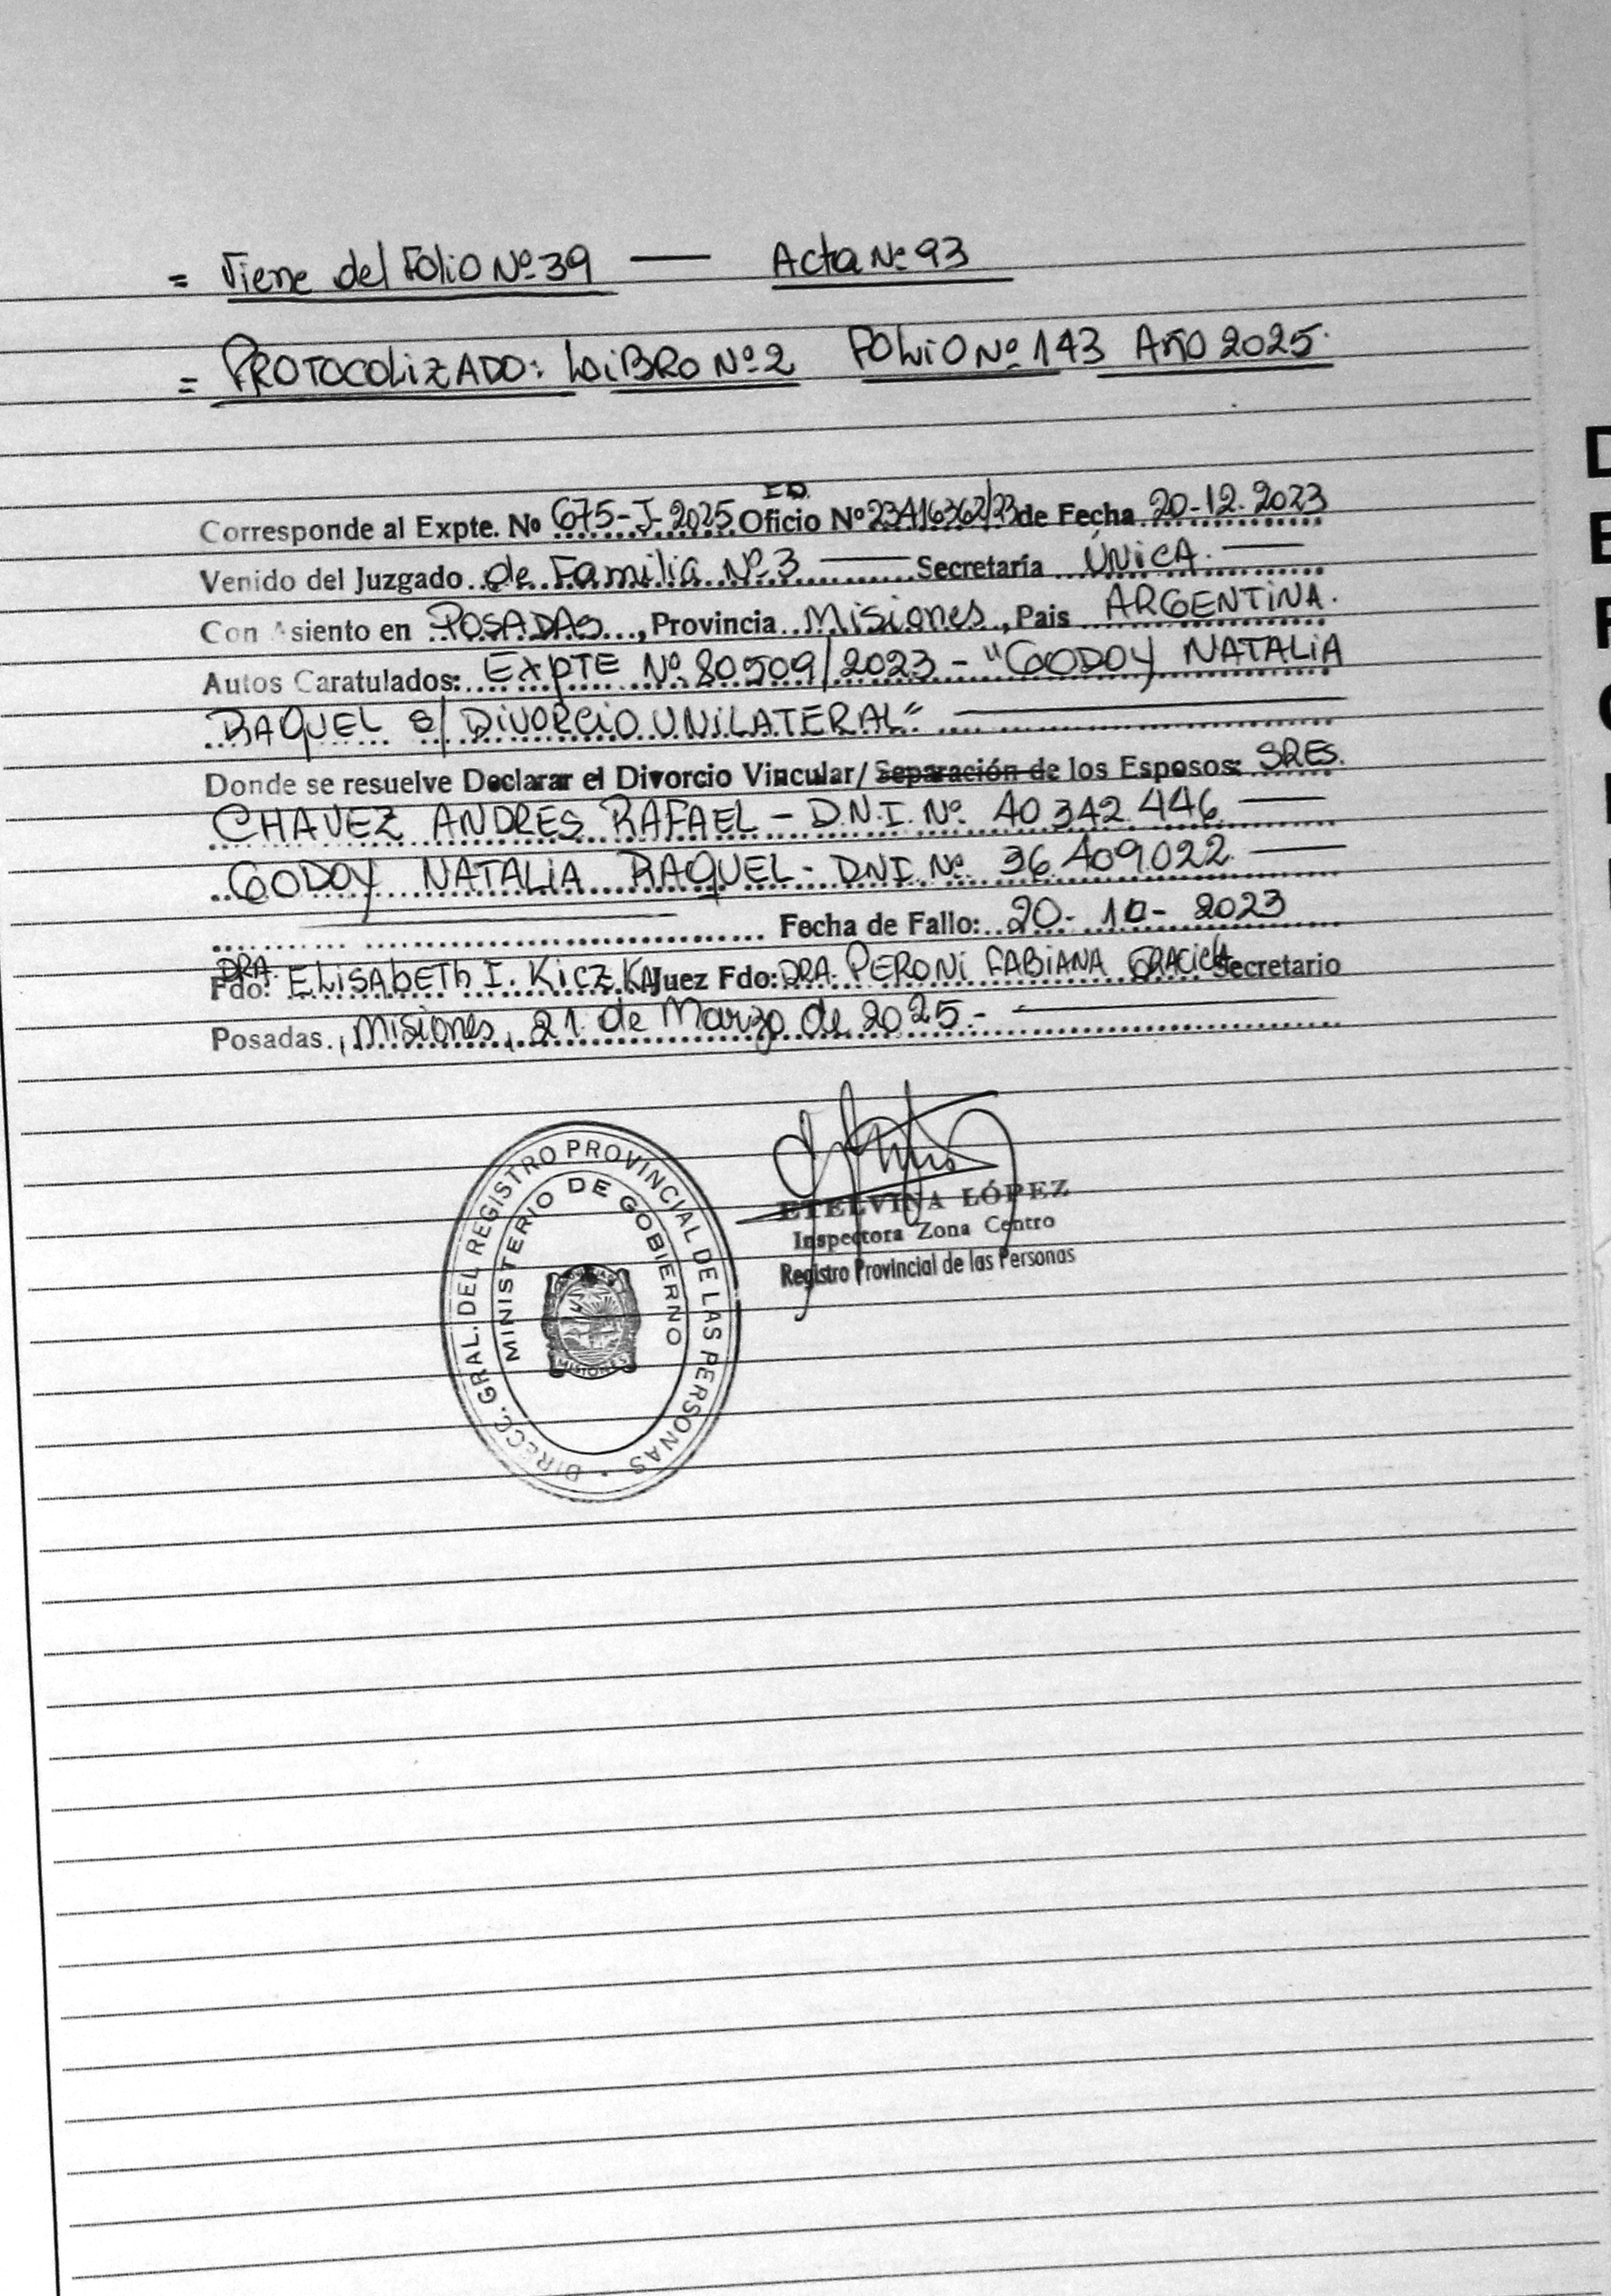 = Viene del Folio Nº 39 — Acta Nº 93
= PROTOCOLIZADO: LiBRO Nº 2 FOLiO Nº 143 AÑO 2025.
Corresponde al Expte. Nº 675-J-2025 E.D. Oficio Nº 23416362/23 de Fecha 20-12-2023
Venido del Juzgado de Familia Nº 3 — Secretaría ÚNiCA. —
Con Asiento en POSADAS, Provincia Misiones, Pais ARGENTiNA.
Autos Caratulados: EXPTE Nº 80509/2023 - "GODOY NATALiA
RAQUEL S/ DiVORCiO UNiLATERAL" —
Donde se resuelve Declarar el Divorcio Vincular/ Separación de los Esposos: SRES.
CHAVEZ ANDRES RAFAEL - D.N.I. Nº 40.342.446 —
GODOY NATALiA RAQUEL - DNI. Nº 36.409.022 —
— Fecha de Fallo: 20-10-2023
Fdo: DRA. ELiSAbETh I. KiCZKA Juez Fdo: DRA. PERONi FABiANA GRACiELA Secretario
Posadas, Misiones, 21 de Marzo de 2025.- —
DIRECC. GRAL. DEL REGISTRO PROVINCIAL DE LAS PERSONAS
MINISTERIO DE GOBIERNO
MISIONES
ETELVINA LÓPEZ
Inspectora Zona Centro
Registro Provincial de las Personas